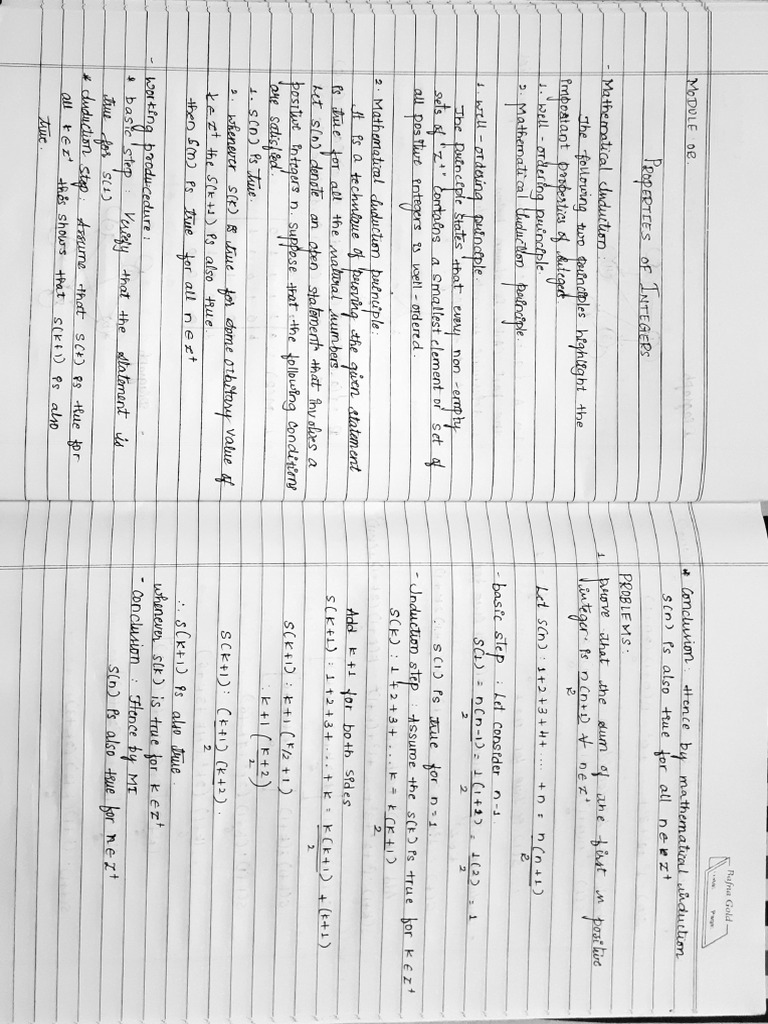 MODULE 02.
PROPERTIES OF INTEGERS
- Mathematical induction:
The following two principles highlight the
important properties of integers
1. well-ordering principle.
2. Mathematical induction principle
1. well-ordering principle.
The principle states that every non-empty
sets of "z+" contains a smallest element or set of
all positive integers is well-ordered.
2. Mathematical induction principle:
It is a technique of proving the given statement
is true for all the natural numbers
Let s(n) denote an open statement that involves a
positive integers n. suppose that the following conditions
are satisfied.
1. s(n) is true.
2. whenever s(k) is true for some orbitary value of
k ∈ z+ the s(k+1) is also true.
then s(n) is true for all n ∈ z+
- working producedure:
* basic step: Verify that the statement is
true for s(1)
* induction step: Assume that s(k) is true for
all k ∈ z+ this shows that s(k+1) is also
true.
Bafna Gold
* conclusion: Hence by mathematical induction
s(n) is also true for all n ∈ z+
PROBLEMS:
1 prove that the sum of the first n positive
integer is n(n+1)/2 ∀ n ∈ z+
Let s(n) : 1+2+3+4+ ... +n = n(n+1)/2
- basic step : Let consider n-1
s(1) = n(n-1)/2 = 1(1+1)/2 = 1(2)/2 = 1
∴ s(1) is true for n=1
- Induction step : Assume the s(k) is true for k ∈ z+
s(k) : 1+2+3+....k = k(k+1)/2
Add k+1 for both sides
s(k+1) : 1+2+3+...+k = k(k+1)/2 + (k+1)
s(k+1) : k+1 (k/2 + 1)
: k+1 (k+2/2)
s(k+1) : (k+1)(k+2)/2.
∴ s(k+1) is also true.
whenever s(k) is true for k ∈ z+
- conclusion : Hence by MI
s(n) is also true for n ∈ z+